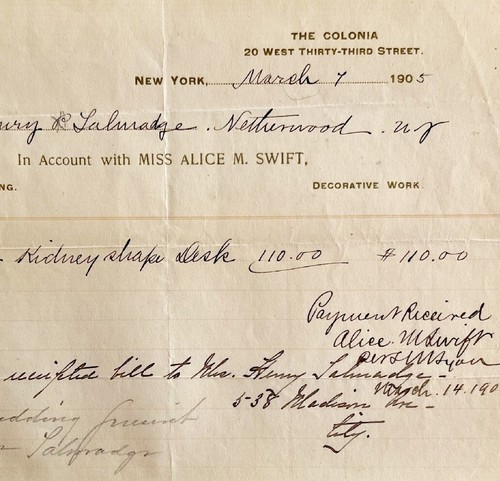 THE COLONIA
20 WEST THIRTY-THIRD STREET.
NEW YORK, March 7 1905
Talmadge. Netherwood. NJ
In Account with MISS ALICE M. SWIFT,
NG. DECORATIVE WORK.
Kidney shape Desk 110.00 $110.00
Payment Received
Alice M Swift
per
receipted bill to Mrs. Henry Talmadge
March. 14. 190
538 Madison Ave
City.
edding present
Talmadge